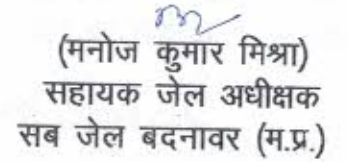 (मनोज कुमार मिश्रा)
सहायक जेल अधीक्षक
सब जेल बदनावर (म.प्र.)